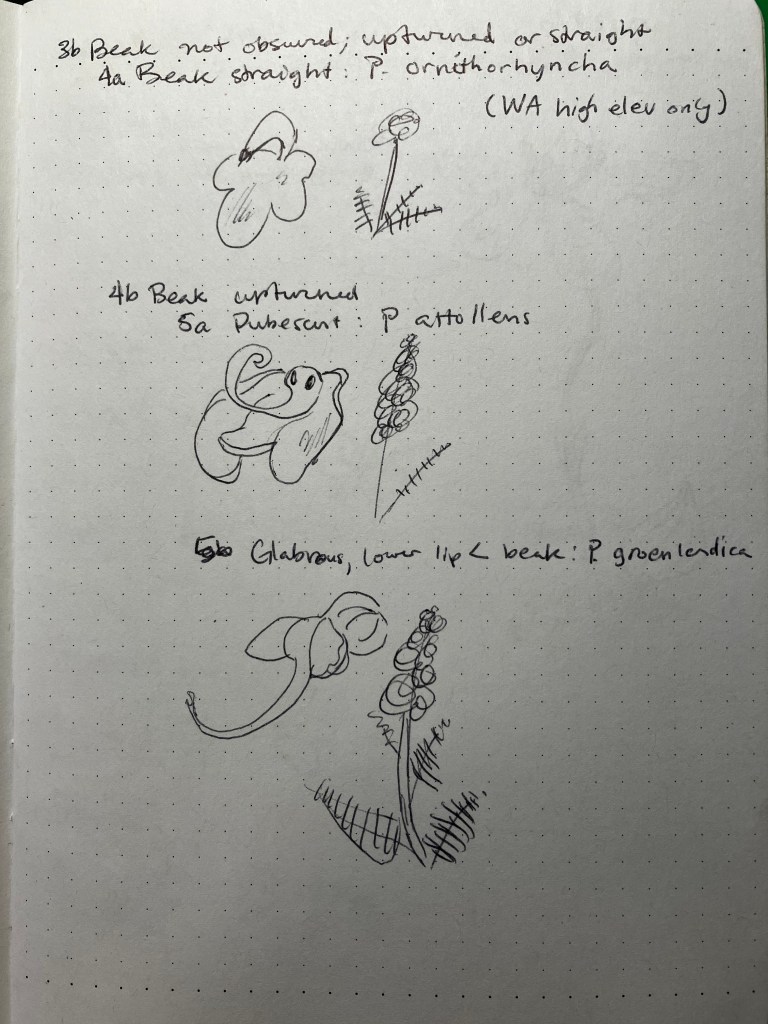 3b Beak not obscured; upturned or straight
4a Beak straight: P. ornithorhyncha
(WA high elev only)
4b Beak upturned
5a Pubescent: P attollens
5b Glabrous, lower lip < beak: P. groenlandica